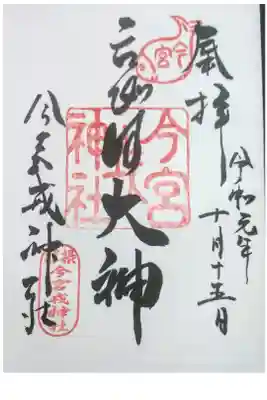 奉拝
令和元年
十月十五日
今宮
大神
今宮
神社
今宮戎神社
今宮戎神社